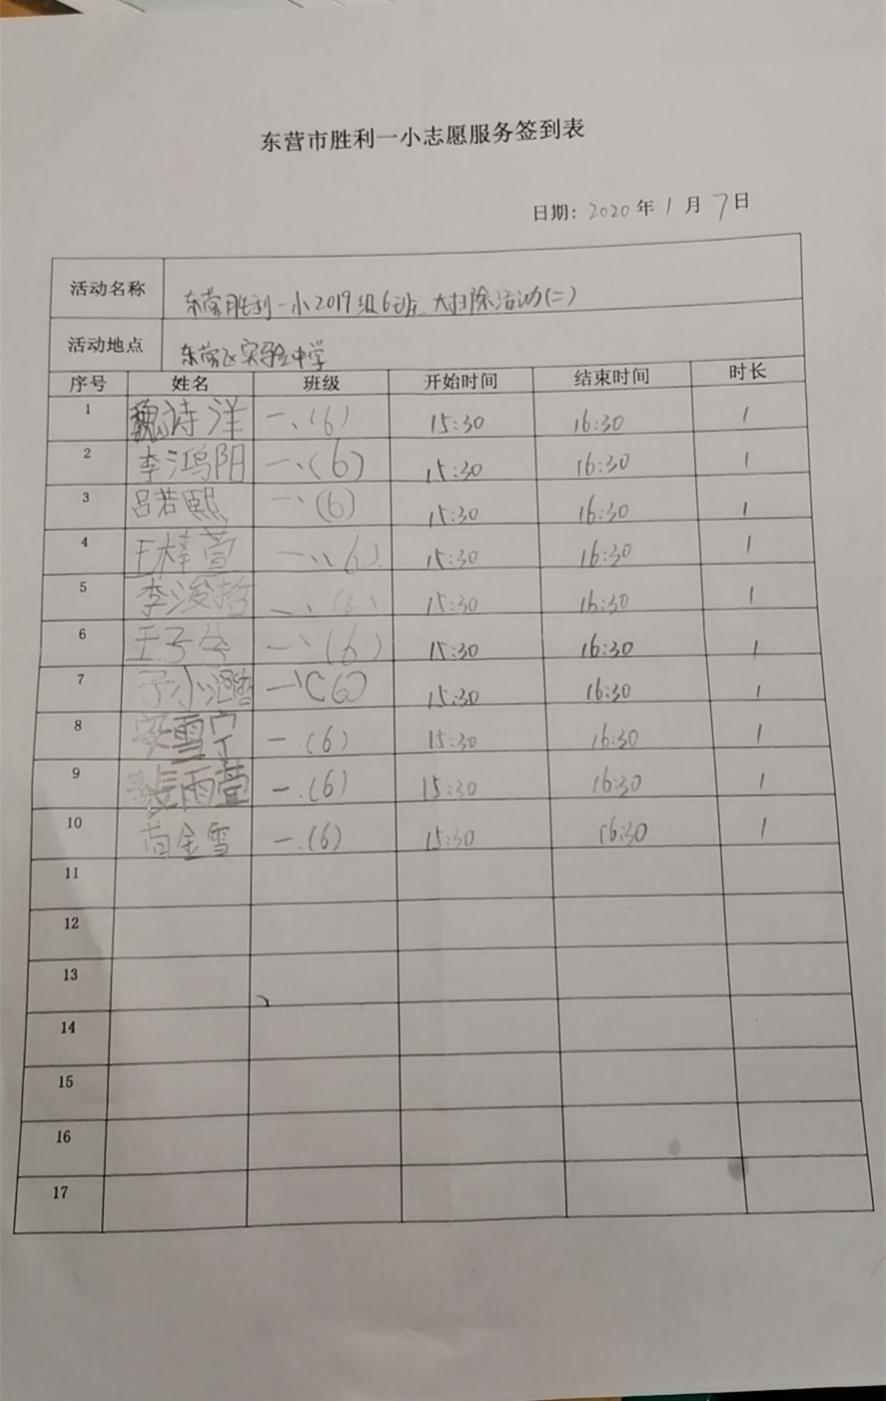 东营市胜利一小志愿服务签到表
日期: 2020年1月7日
活动名称 东营胜利一小2019级6班 大扫除活动(二)
活动地点 东营区实验中学
序号 姓名 班级 开始时间 结束时间 时长
1 魏诗洋 一、(6) 15:30 16:30 1
2 李鸿阳 一、(6) 15:30 16:30 1
3 吕若熙 一、(6) 15:30 16:30 1
4 王梓萱 一、(6) 15:30 16:30 1
5 李浚哲 一、(6) 15:30 16:30 1
6 王子 一、(6) 15:30 16:30 1
7 小 一、(6) 15:30 16:30 1
8 雪宁 一.(6) 15:30 16:30 1
9 裴雨萱 一.(6) 15:30 16:30 1
10 苟金雪 一.(6) 15:30 16:30 1
11
12
13
14
15
16
17